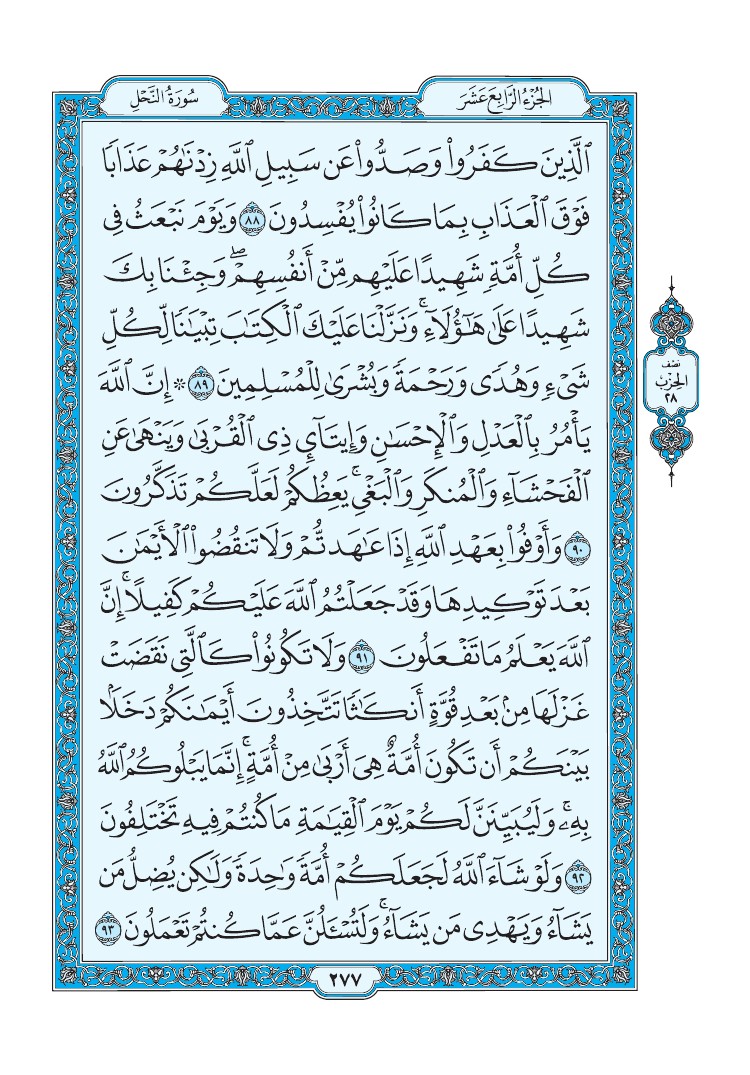 الجُزْءُ الرَّابِعَ عَشَرَ
سُورَةُ النَّحْلِ
ٱلَّذِينَ كَفَرُواْ وَصَدُّواْ عَن سَبِيلِ ٱللَّهِ زِدْنَٰهُمْ عَذَابٗا
فَوْقَ ٱلْعَذَابِ بِمَا كَانُواْ يُفْسِدُونَ ٨٨ وَيَوْمَ نَبْعَثُ فِي
كُلِّ أُمَّةٖ شَهِيدًا عَلَيْهِم مِّنْ أَنفُسِهِمْۖ وَجِئْنَا بِكَ
شَهِيدًا عَلَىٰ هَٰٓؤُلَآءِۚ وَنَزَّلْنَا عَلَيْكَ ٱلْكِتَٰبَ تِبْيَٰنٗا لِّكُلِّ
شَيْءٖ وَهُدٗى وَرَحْمَةٗ وَبُشْرَىٰ لِلْمُسْلِمِينَ ٨٩ ۞ إِنَّ ٱللَّهَ
يَأْمُرُ بِٱلْعَدْلِ وَٱلْإِحْسَٰنِ وَإِيتَآيِٕ ذِي ٱلْقُرْبَىٰ وَيَنْهَىٰ عَنِ
ٱلْفَحْشَآءِ وَٱلْمُنكَرِ وَٱلْبَغْيِۚ يَعِظُكُمْ لَعَلَّكُمْ تَذَكَّرُونَ
٩٠ وَأَوْفُواْ بِعَهْدِ ٱللَّهِ إِذَا عَٰهَدتُّمْ وَلَا تَنقُضُواْ ٱلْأَيْمَٰنَ
بَعْدَ تَوْكِيدِهَا وَقَدْ جَعَلْتُمُ ٱللَّهَ عَلَيْكُمْ كَفِيلًاۚ إِنَّ
ٱللَّهَ يَعْلَمُ مَا تَفْعَلُونَ ٩١ وَلَا تَكُونُواْ كَٱلَّتِي نَقَضَتْ
غَزْلَهَا مِنۢ بَعْدِ قُوَّةٍ أَنكَٰثٗا تَتَّخِذُونَ أَيْمَٰنَكُمْ دَخَلَۢا
بَيْنَكُمْ أَن تَكُونَ أُمَّةٌ هِيَ أَرْبَىٰ مِنْ أُمَّةٍۚ إِنَّمَا يَبْلُوكُمُ ٱللَّهُ
بِهِۦۚ وَلَيُبَيِّنَنَّ لَكُمْ يَوْمَ ٱلْقِيَٰمَةِ مَا كُنتُمْ فِيهِ تَخْتَلِفُونَ
٩٢ وَلَوْ شَآءَ ٱللَّهُ لَجَعَلَكُمْ أُمَّةٗ وَٰحِدَةٗ وَلَٰكِن يُضِلُّ مَن
يَشَآءُ وَيَهْدِي مَن يَشَآءُۚ وَلَتُسْـَٔلُنَّ عَمَّا كُنتُمْ تَعْمَلُونَ ٩٣
نصف
الحزب
٢٨
٢٧٧